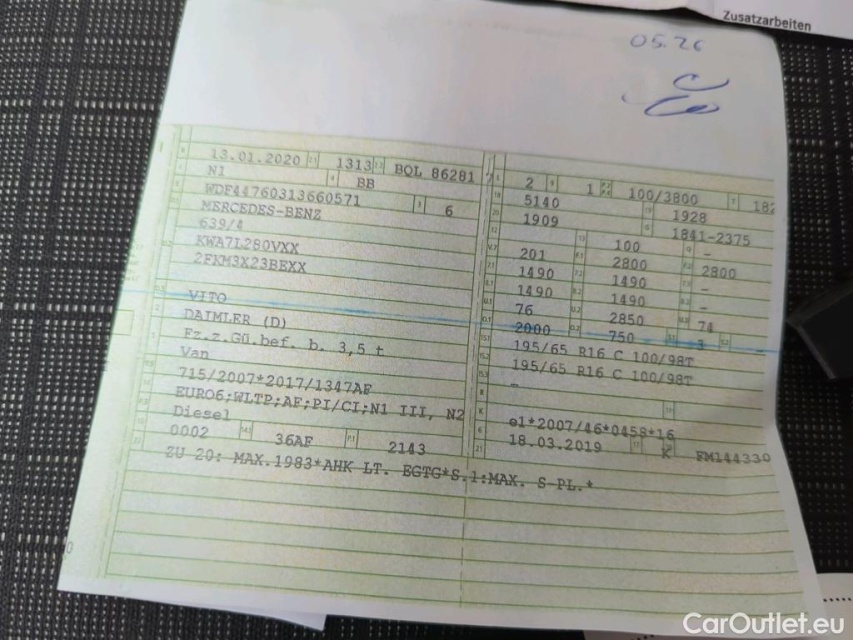 Zusatzarbeiten
05.26
13.01.2020 1313 BQL 86281 2 1 100/3800
N1 BB 5140 1928
WDF44760313660571 6 1909 1841-2375
MERCEDES-BENZ 100 -
639/4 201 2800 2800
KWA7L280VXX 1490 1490 -
2FKM3X23BEXX 1490 1490 -
76 2850 74
VITO 2000 750 3
DAIMLER (D) 195/65 R16 C 100/98T
Fz.z.Gü.bef. b. 3,5 t 195/65 R16 C 100/98T
Van -
715/2007*2017/1347AF
EURO6;WLTP;AF;PI/CI;N1 III, N2 e1*2007/46*0458*16
Diesel 18.03.2019 K FM144330
0002 36AF 2143
ZU 20: MAX.1983*AHK LT. EGTG*S.1:MAX. S-PL.*
CarOutlet.eu